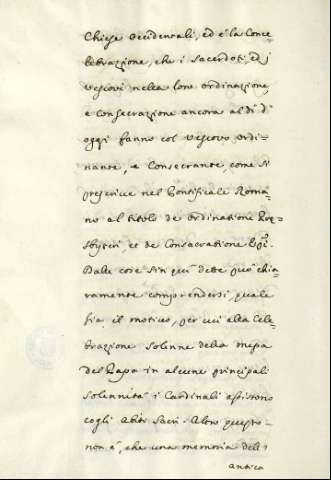 Chiese Occidentali, ed è la Conce=
lebrazione, che i Sacerdoti, ed i
Vescovi nella loro ordinazione,
e Consecrazione ancora al dì d'
oggi fanno col Vescovo ordi=
nante, e Consecrante, come si
prescrive nel Pontificale Roma=
no al titolo de Ordinatione Pre=
sbyteri, et de Consacratione Epi.
Dalle cose sin quì dette può chia=
ramente comprendersi, quale
sia il motivo, per cui alla Cele=
brazione solenne della messa
del Papa in alcune principali
Solennità i Cardinali assistono
cogli Abiti Sacri. Altro questo
non è, che una memoria dell'
antica